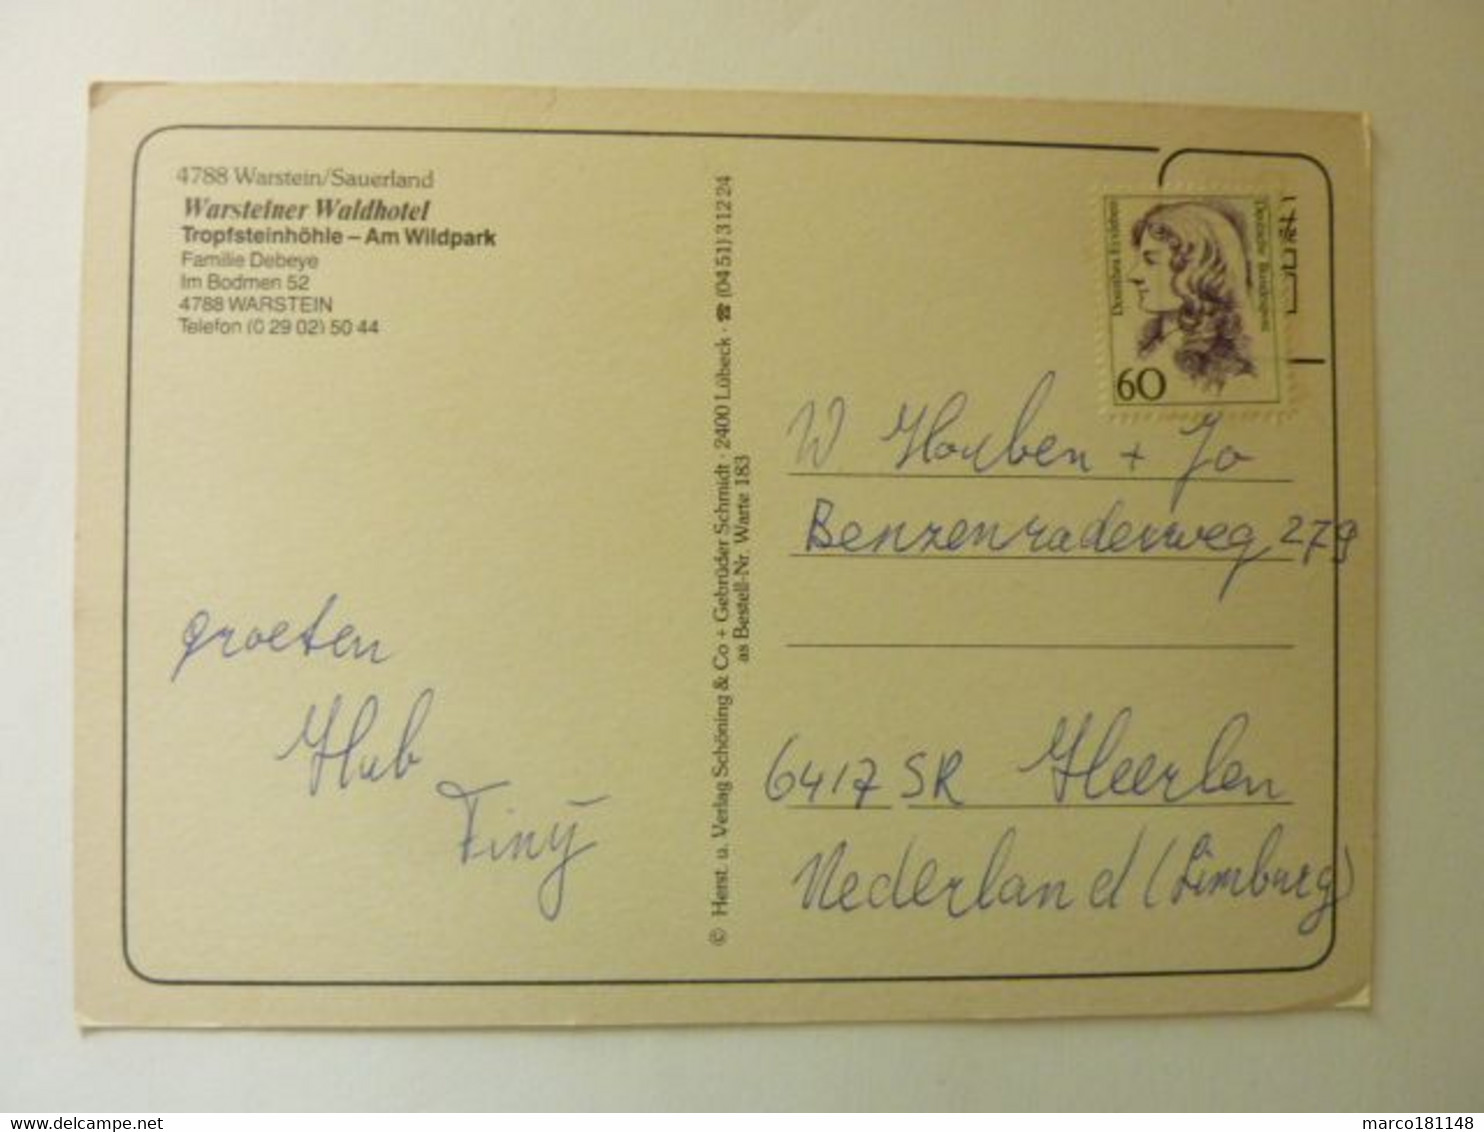 4788 Warstein/Sauerland
Warsteiner Waldhotel
Tropfsteinhöhle – Am Wildpark
Familie Debeye
Im Bodmen 52
4788 WARSTEIN
Telefon (0 29 02) 50 44
groeten
Hub
Tiny
© Herst. u. Verlag Schöning & Co + Gebrüder Schmidt · 2400 Lübeck · ☎ (04 51) 3 12 24
as Bestell-Nr. Warte 183
Dorothea Erxleben
Deutsche Bundespost
60
W Horben + Jo
Benzenraderweg 279
6417 SR Heerlen
Nederland (Limburg)
marco181148